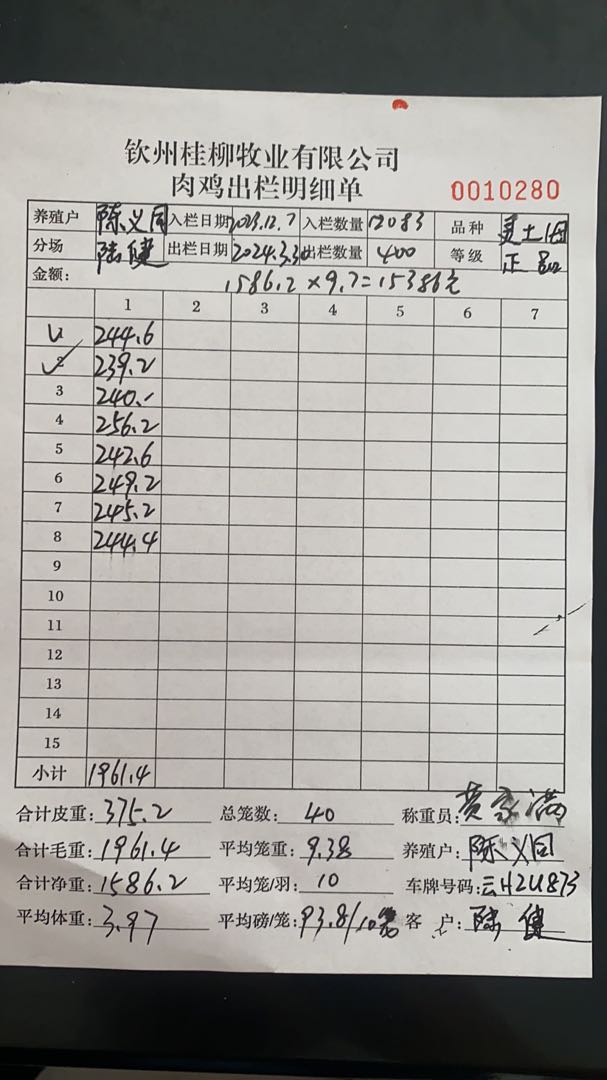 钦州桂柳牧业有限公司
肉鸡出栏明细单 0010280
养殖户 陈义同 入栏日期 2023.12.7 入栏数量 12083 品种 土
分场 陆健 出栏日期 2024.3.30 出栏数量 400 等级 正品
金额: 1586.2×9.7=15386元
1 2 3 4 5 6 7
1 244.6
2 239.2
3 240.
4 256.2
5 242.6
6 249.2
7 245.2
8 244.4
9
10
11
12
13
14
15
小计 1961.4
合计皮重: 375.2 总笼数: 40 称重员: 黄家满
合计毛重: 1961.4 平均笼重: 9.38 养殖户: 陈义同
合计净重: 1586.2 平均笼/羽: 10 车牌号码: 云H2U873
平均体重: 3.97 平均磅/笼: 93.8/10笼 客 户: 陆健